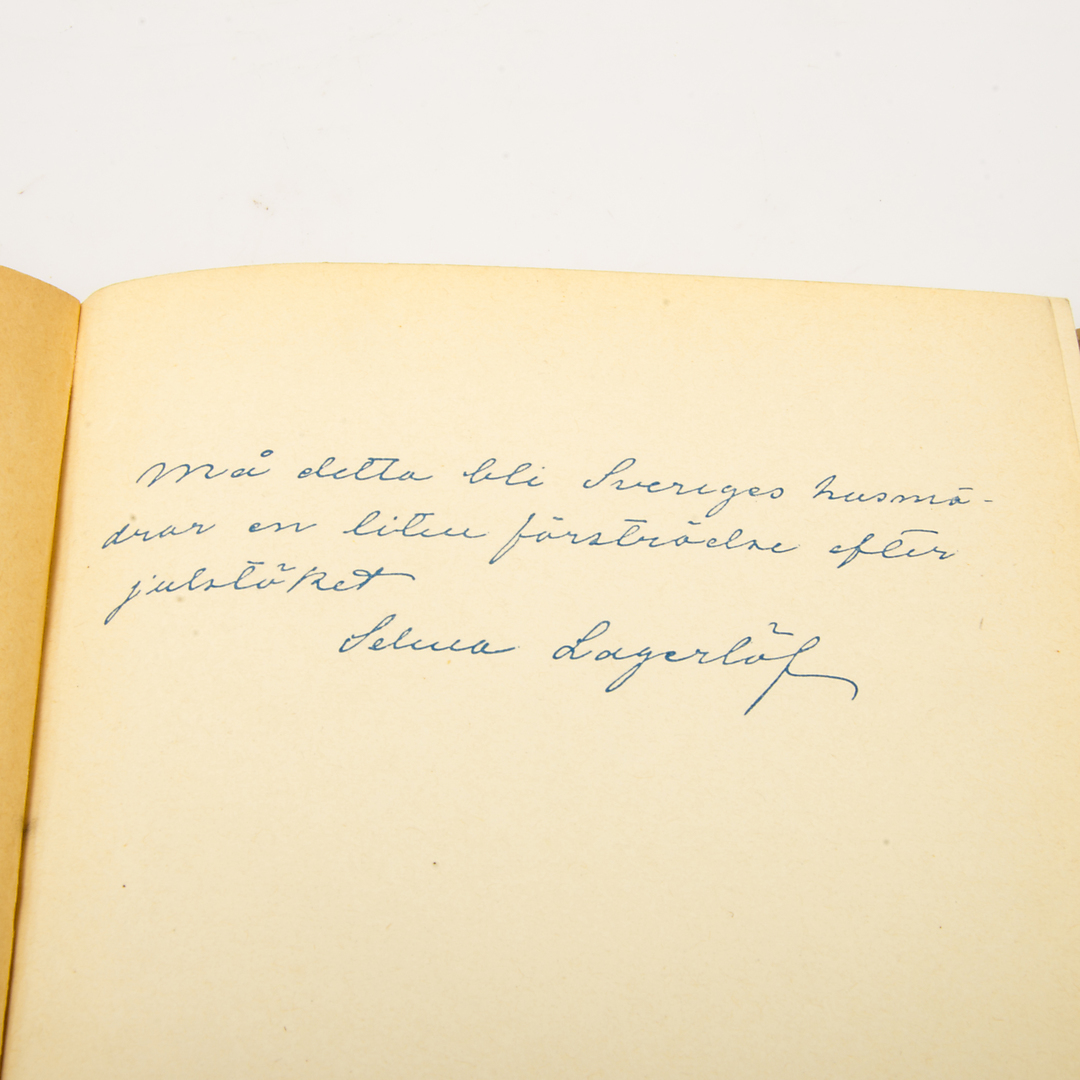 Må detta bli Sveriges husmö-
drar en liten förströelse efter
julstöket
Selma Lagerlöf